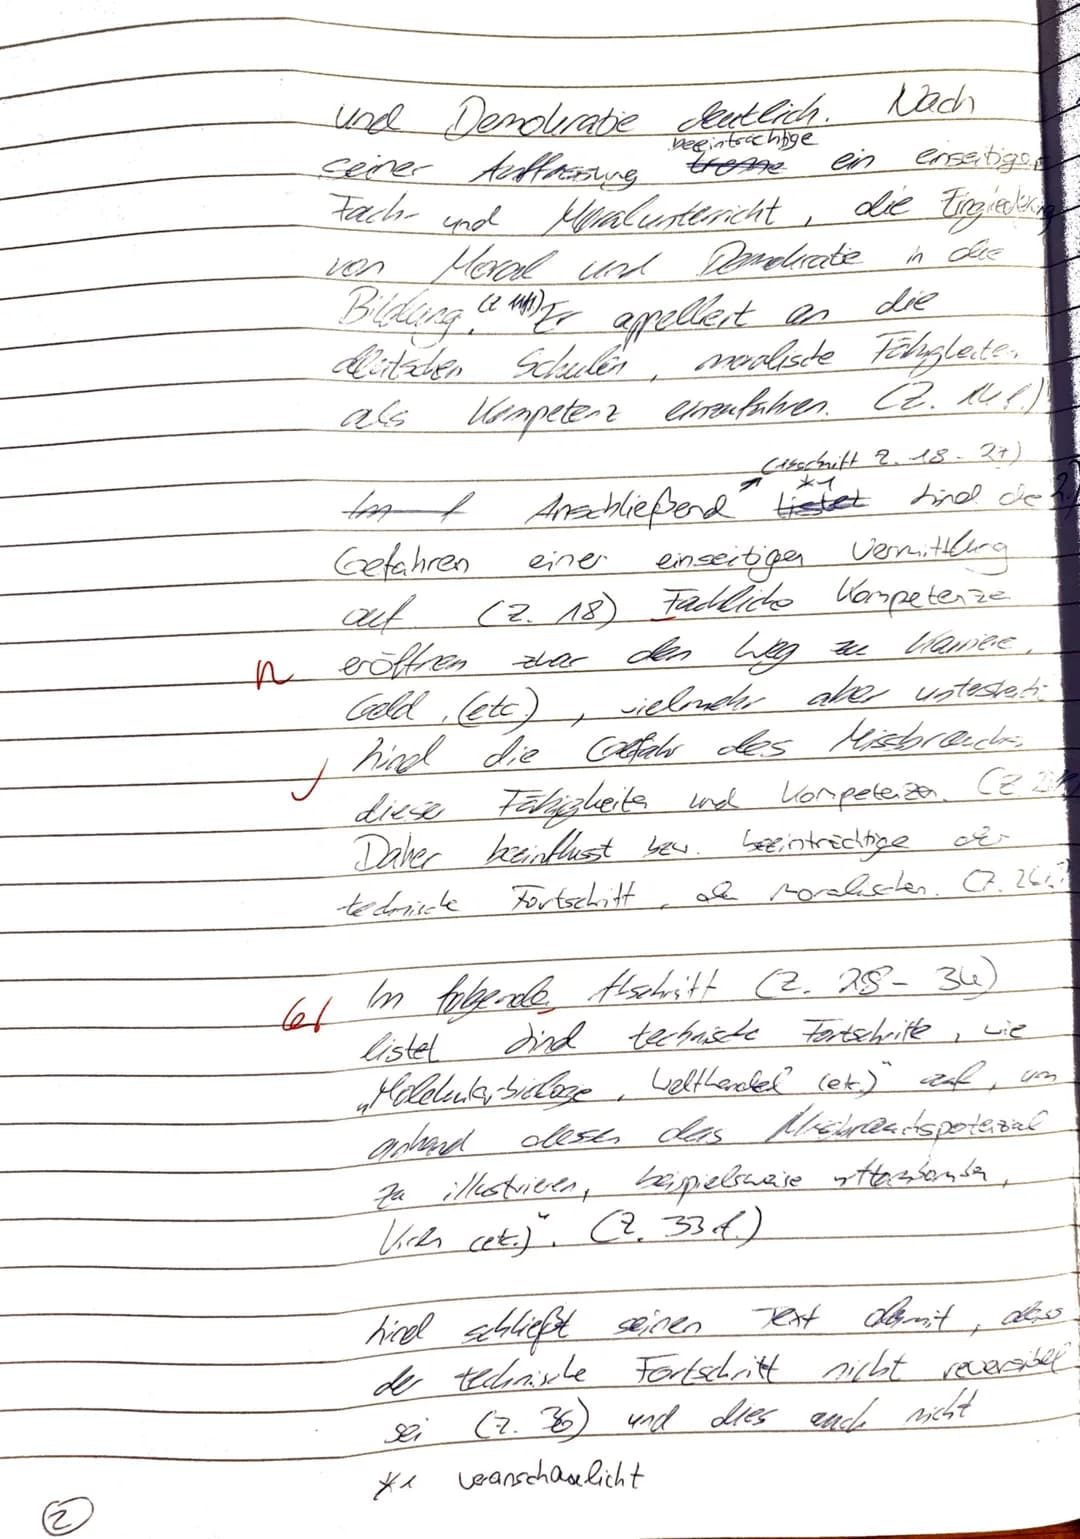 und Demokratie deutlich. Nach
beeinträchtige
seiner Auffassung trenne ein einseitiger
Fach- und Moralunterricht, die
von Moral und Demokratie in die
Bildung. Er appelliert an die
deutschen Schulen, moralische Fähigkeiten
als Kompetenz einzuführen. (Z. 14f.)
(Abschnitt Z. 18 - 27)
*1
Im Anschließend listet Lind die
Gefahren einer einseitigen Vermittlung
auf (Z. 18) Fachliche Kompetenzen
n eröffnen zwar den Weg zu Karriere,
Geld, (etc), vielmehr aber unterstreicht
Lind die Gefahr des Missbrauchs
dieser Fähigkeiten und Kompetenzen. (Z.
Daher beeinflusst bzw. beeinträchtige der
technische Fortschritt, den moralischen. (Z. 26
Im folgenden Abschnitt (Z. 28 - 34)
listet Lind technische Fortschritte, wie
„Molekularbiologe, Welthandel (etc.)" auf, um
anhand dessen das Missbrauchspotenzial
zu illustrieren, beispielsweise Atombomben,
Viren (etc.)". (Z. 33f.)
Lind schließt seinen Text damit, dass
der technische Fortschritt nicht reversibel
sei (Z. 36) und dies auch nicht
*1 veranschaulicht
2